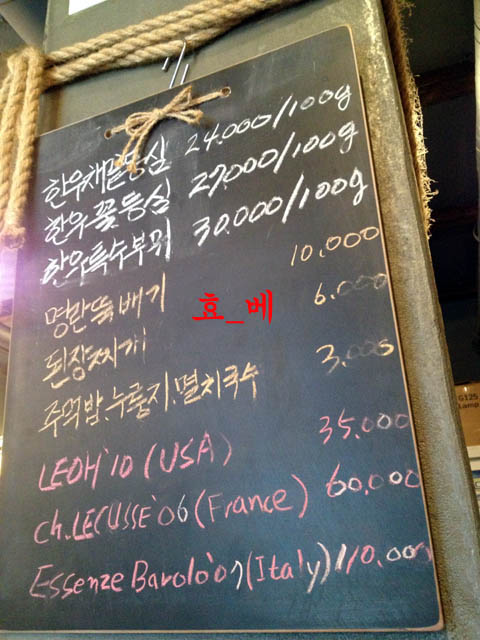 한우채끝등심 24.000/100g
한우꽃등심 27.000/100g
한우특수부위 30.000/100g
명란뚝배기 10,000
된장찌개 6.000
주먹밥.누룽지.멸치국수 3.000
LEOH'10 (USA) 35.000
Ch.LECUSSE'06 (France) 60.000
Essenze Barolo'07 (Italy) 110.000
효_베
G125
Lamp